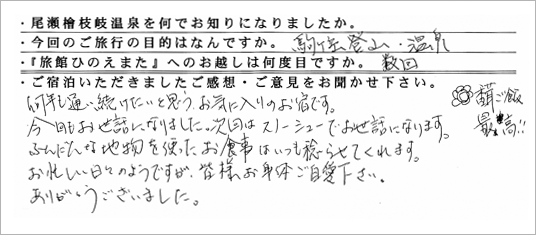 ・尾瀬檜枝岐温泉を何でお知りになりましたか。
・今回のご旅行の目的はなんですか。 駒ヶ岳登山・温泉
・『旅館ひのえまた』へのお越しは何度目ですか。 数回
・ご宿泊いただきましたご感想・ご意見をお聞かせ下さい。
何年も通い続けたいと思う、お気に入りのお宿です。
今回もお世話になりました。次回はスノーシューでお世話になります。
ふんだんな地物を使ったお食事はいつも唸らせてくれます。
お忙しい日々のようですが、皆様お身体ご自愛下さい。
ありがとうございました。
ご飯
最高!!